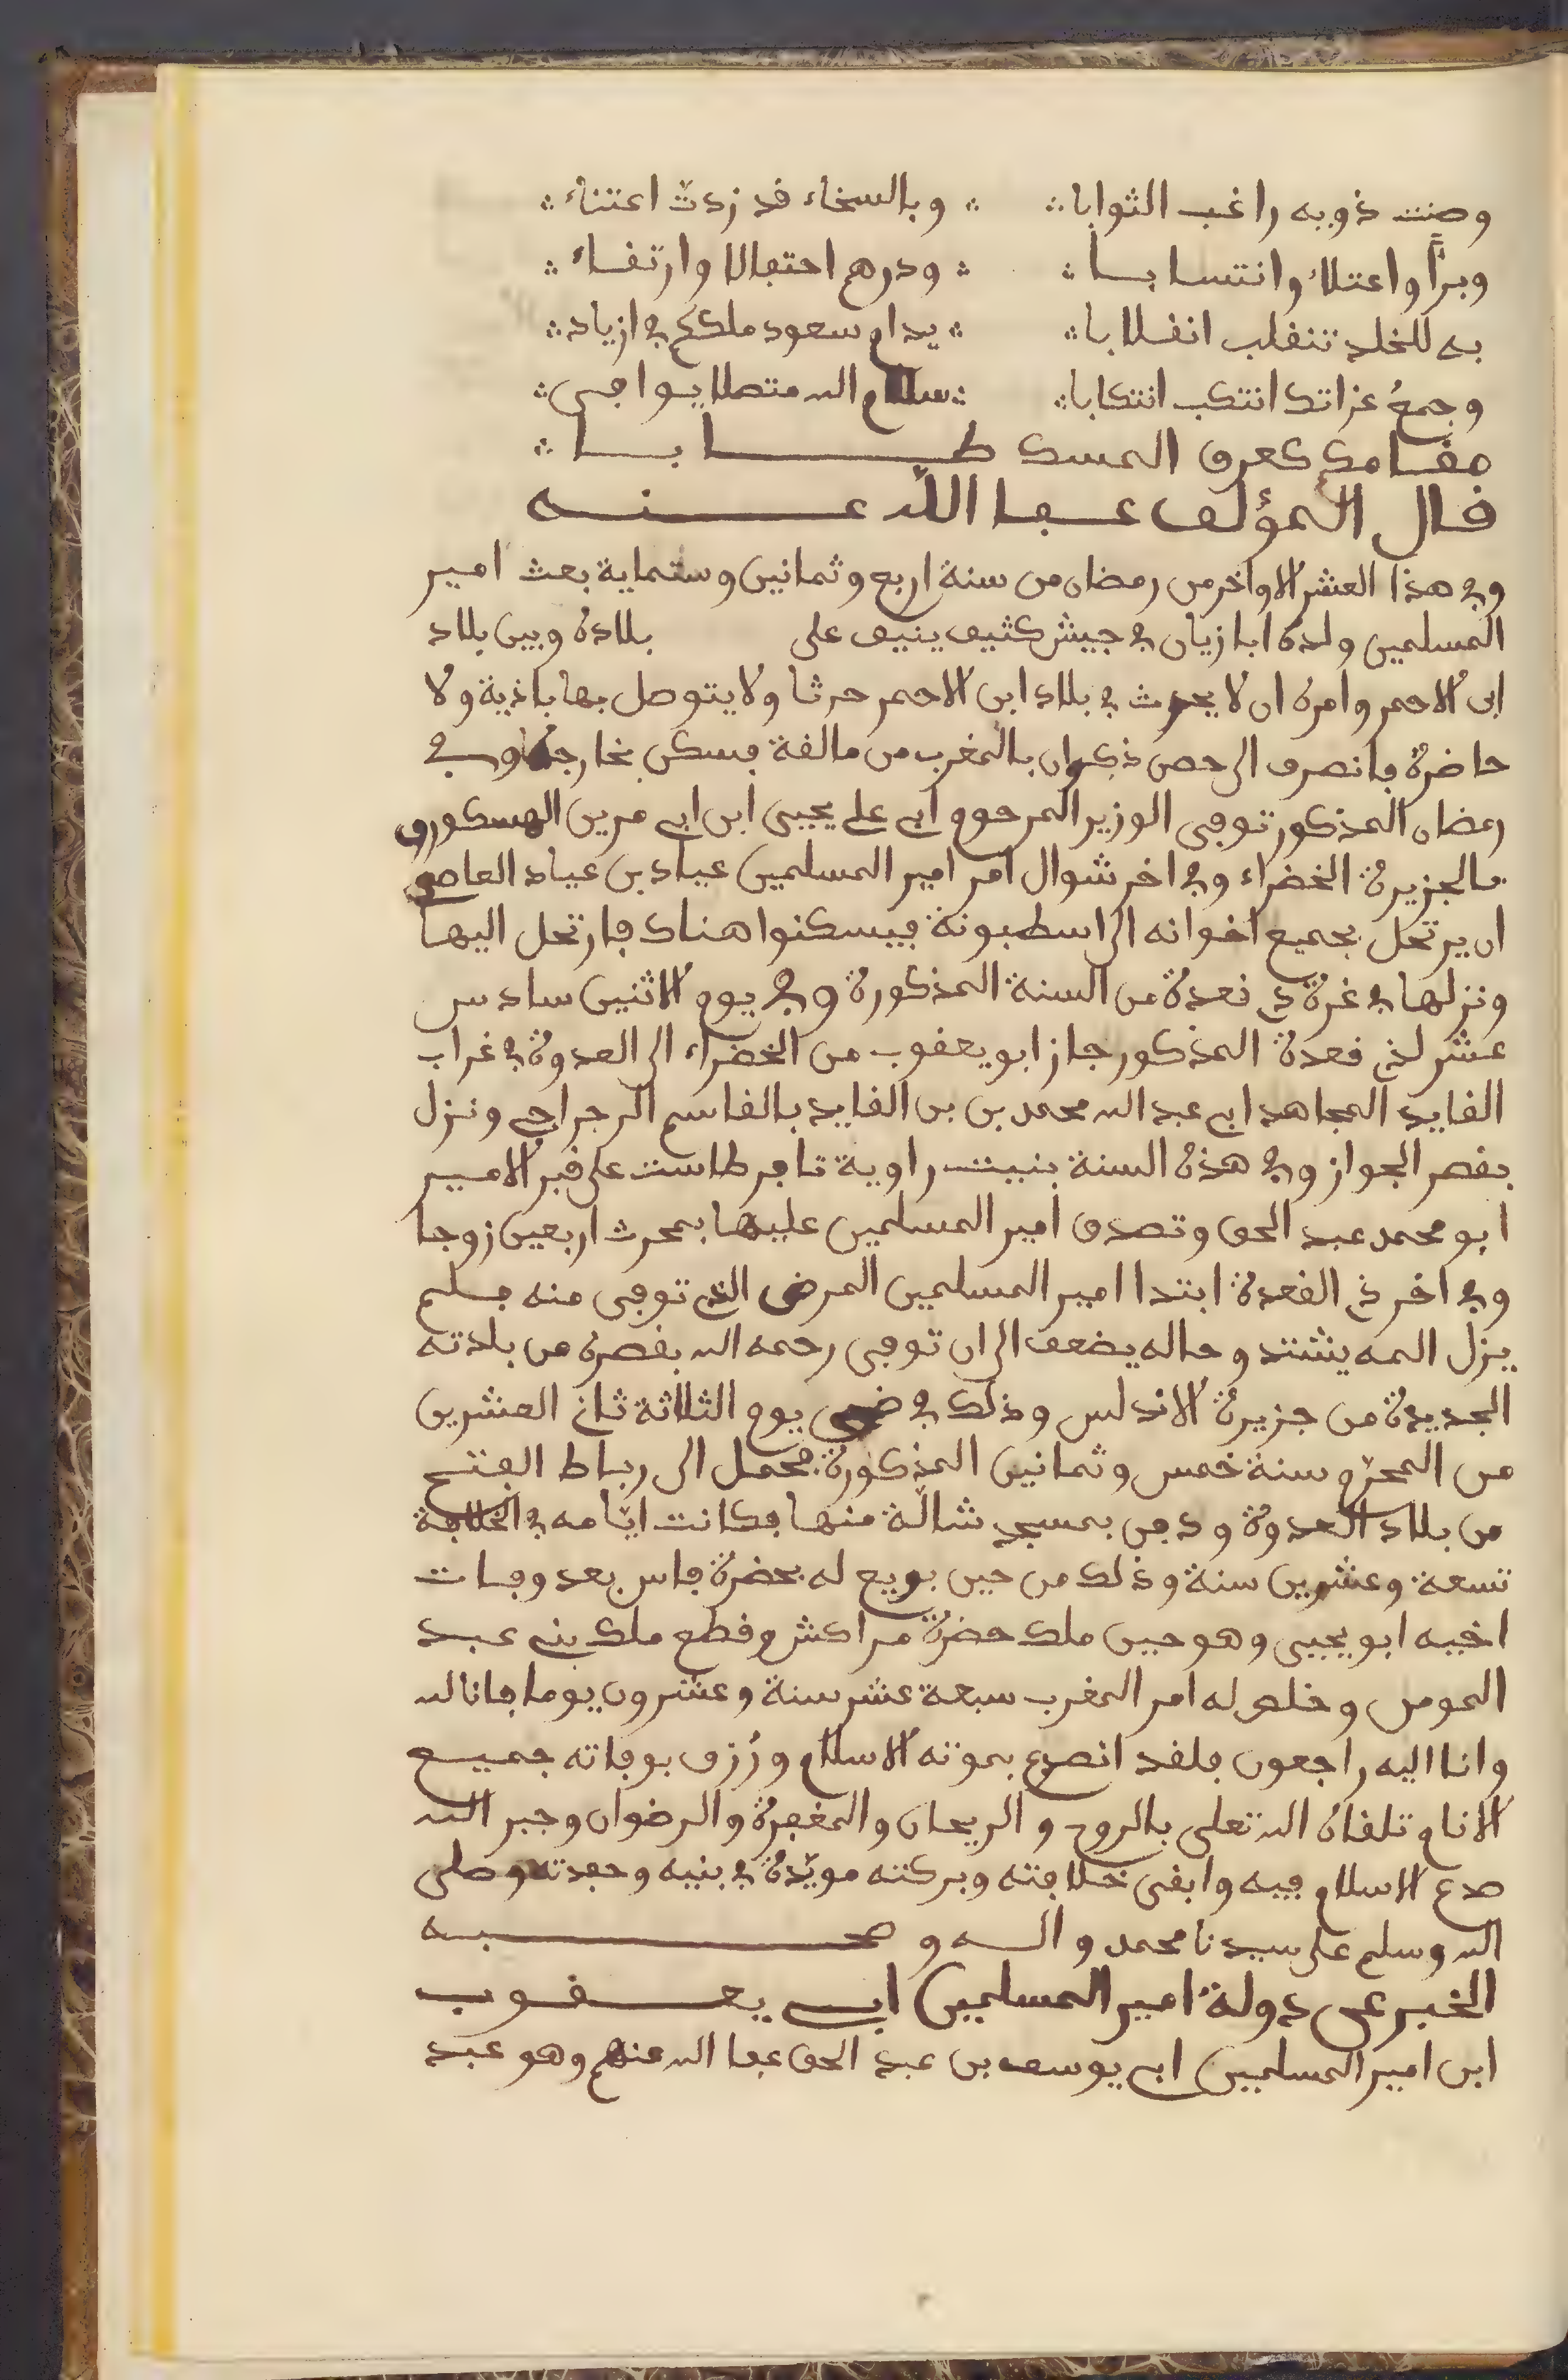 وصنت ذويه راغب الثوابا ∴ وبالسخاء قد زدت اعتناء ∴
وبرًّا واعتلاء وانتسابا ∴ ودرهم احتفالا وارتقاء ∴
به للخلد تنقلب انقلابا ∴ يدام سعود ملككم في ازياد ∴
وجمع عزاتك انتكب انتكابا ∴ سلام الله متصلا يوافي ∴
مقامك كعرف المسك طابا ∴
قال المؤلف عفا الله عنه
وفي هذا العشر الاواخر من رمضان من سنة اربع وثمانين وستماية بعث امير
المسلمين ولده ابا زيان في جيش كثيف ينيف على بلاده وبين بلاد
ابن الاحمر وامره ان لا يحدث في بلاد ابن الاحمر حدثا ولا يتوصل بها باذية ولا
حاضرة فانصرف الى حصن ذكوان بالمغرب من مالقة فسكن بخارجه وفي
رمضان المذكور توفي الوزير المرحوم ابي علي يحيى ابن ابي مرين الهسكوري
بالجزيرة الخضراء وفي اخر شوال امر امير المسلمين عياد بن عياد العاصمي
ان يرتحل بجميع اخوانه الى اسطبونة فيسكنوا هناك فارتحل اليها
ونزلها في غرة ذي قعدة من السنة المذكورة وفي يوم الاثنين سادس
عشر لذي قعدة المذكور جاز ابو يعقوب من الخضراء الى العدوة في غراب
القايد المجاهد ابي عبد الله محمد بن بن القايد بالقاسم الرجراجي ونزل
بقصر الجواز وفي هذه السنة بنيت راوية تافرطاست على قبر الامير
ابو محمد عبد الحق وتصدق امير المسلمين عليها بمحرث اربعين زوجا
وفي اخر ذي القعدة ابتدا امير المسلمين المرض الذي توفي منه فلم
يزل المه يشتد وحاله يضعف الى ان توفي رحمه الله بقصره من بلدته
الجديدة من جزيرة الاندلس وذلك في ضحى يوم الثلاثة ثاني العشرين
من المحرم سنة خمس وثمانين المذكورة فحمل الى رباط الفتح
من بلاد العدوة ودفن بمسجد شالّة منها فكانت ايّامه في الخلافة
تسعة وعشرين سنة وذلك من حين بويع له بحضرة فاس بعد وفات
اخيه ابو يحيى وهو حين ملك حضرة مراكش وقطع ملك بني عبد
المومن وخلص له امر المغرب سبعة عشر سنة وعشرون يوما فانا لله
وانا اليه راجعون فلقد انصدع بموته الاسلام ورُزق بوفاته جميع
الانام تلقاه الله تعلى بالروح والريحان والمغفرة والرضوان وجبر الله
صدع الاسلام فيه وابقى خلافته وبركته مويّدة في بنيه وحفدته وصلى
الله وسلم على سيدنا محمد واله وصحبه
الخبر عن دولة امير المسلمين ابي يعقوب
ابن امير المسلمين ابي يوسف بن عبد الحق عفا الله عنهم وهو عبد